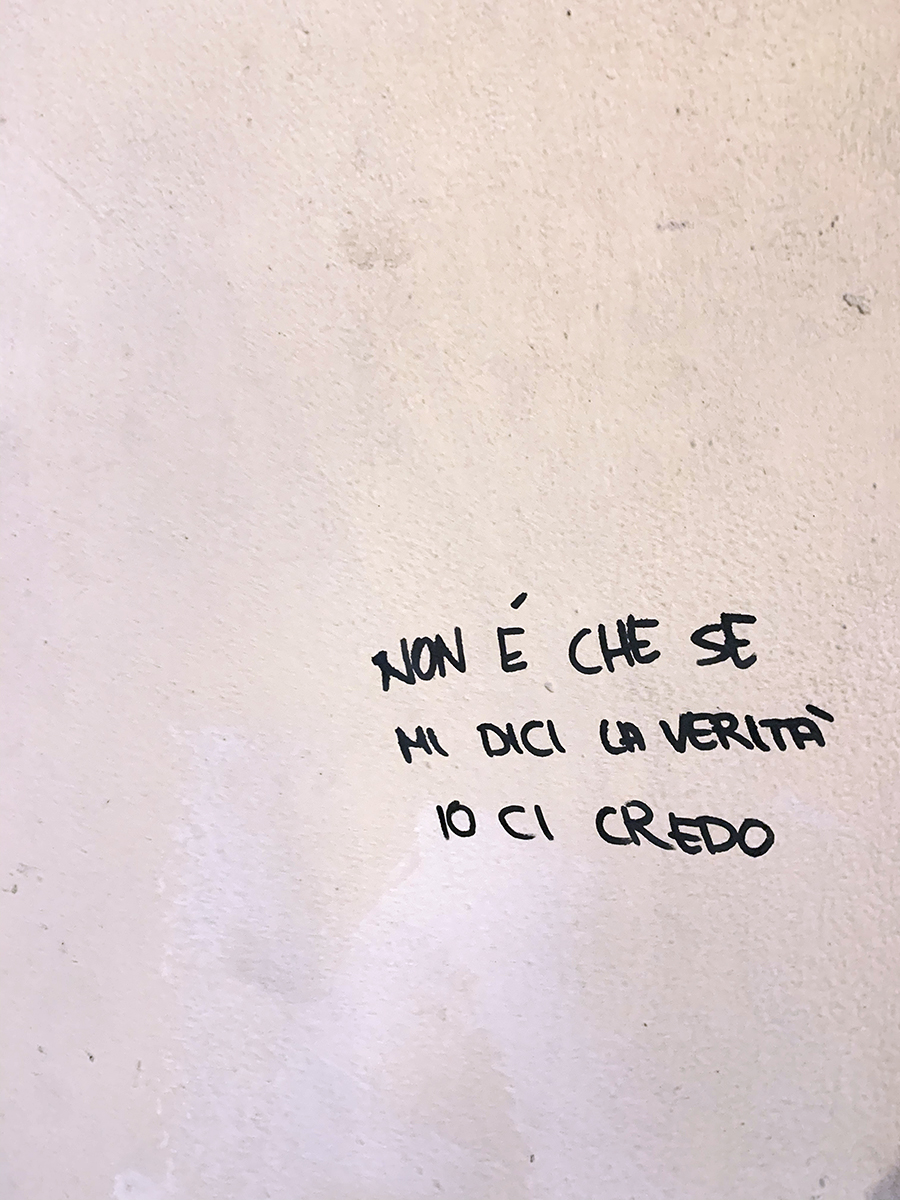 NON É CHE SE
MI DICI LA VERITÀ
IO CI CREDO